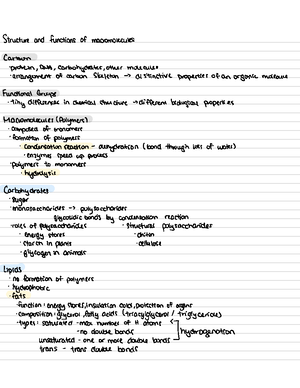 Structure and functions of macromolecules
Carbon
· protein, DNA, carbohydrates, other molecules
· arrangement of carbon skeleton → distinctive properties of an organic molecule
Functional Groups
· tiny difference in chemical structure → different biological properties
Macromolecules (Polymers)
· composed of monomers
· formation of polymers
· condensation reaction - dehydration (bond through loss of water)
· enzymes speed up process
· polymers to monomers
· hydrolysis
Carbohydrates
· sugar
· monosaccharides → polysaccharides
glycosidic bonds by condensation reaction
· roles of polysaccharides · structural polysaccharides
· energy stores · chitin
· starch in plants · cellulose
· glycogen in animals
Lipids
· no formation of polymers
· hydrophobic
· fats
· function: energy stores, insulation, protection of organs
· composition: glycerol, fatty acids (triacylglycerol / triglycerides)
· types: saturated - max number of H atoms
- no double bonds
unsaturated - one or more double bonds
hydrogenation
trans - trans double bonds